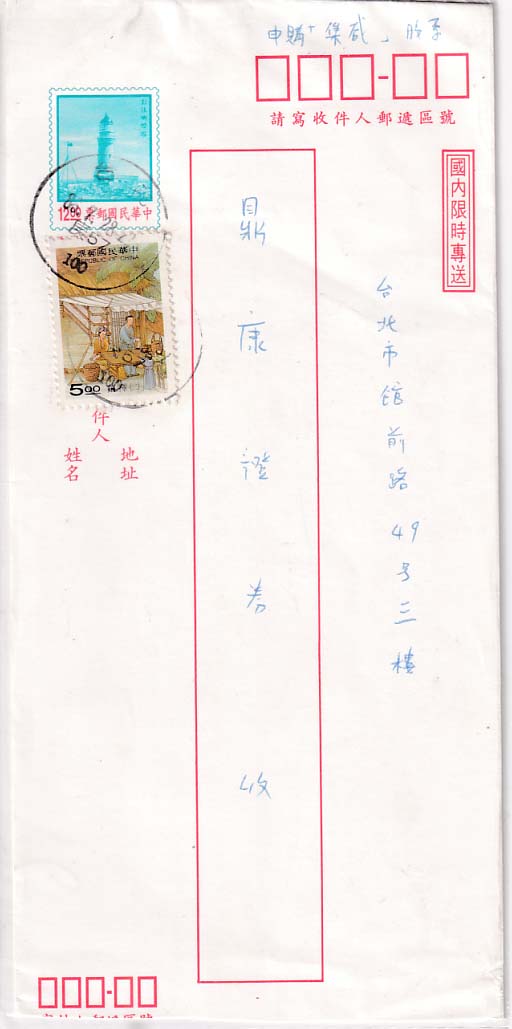 申購「集成」股票
請寫收件人郵遞區號
國內限時專送
台北市館前路49号三樓
鼎康證券 收
12.00 中華民國郵票
中華民國郵票
REPUBLIC OF CHINA
5.00
100
件人
地址
姓名